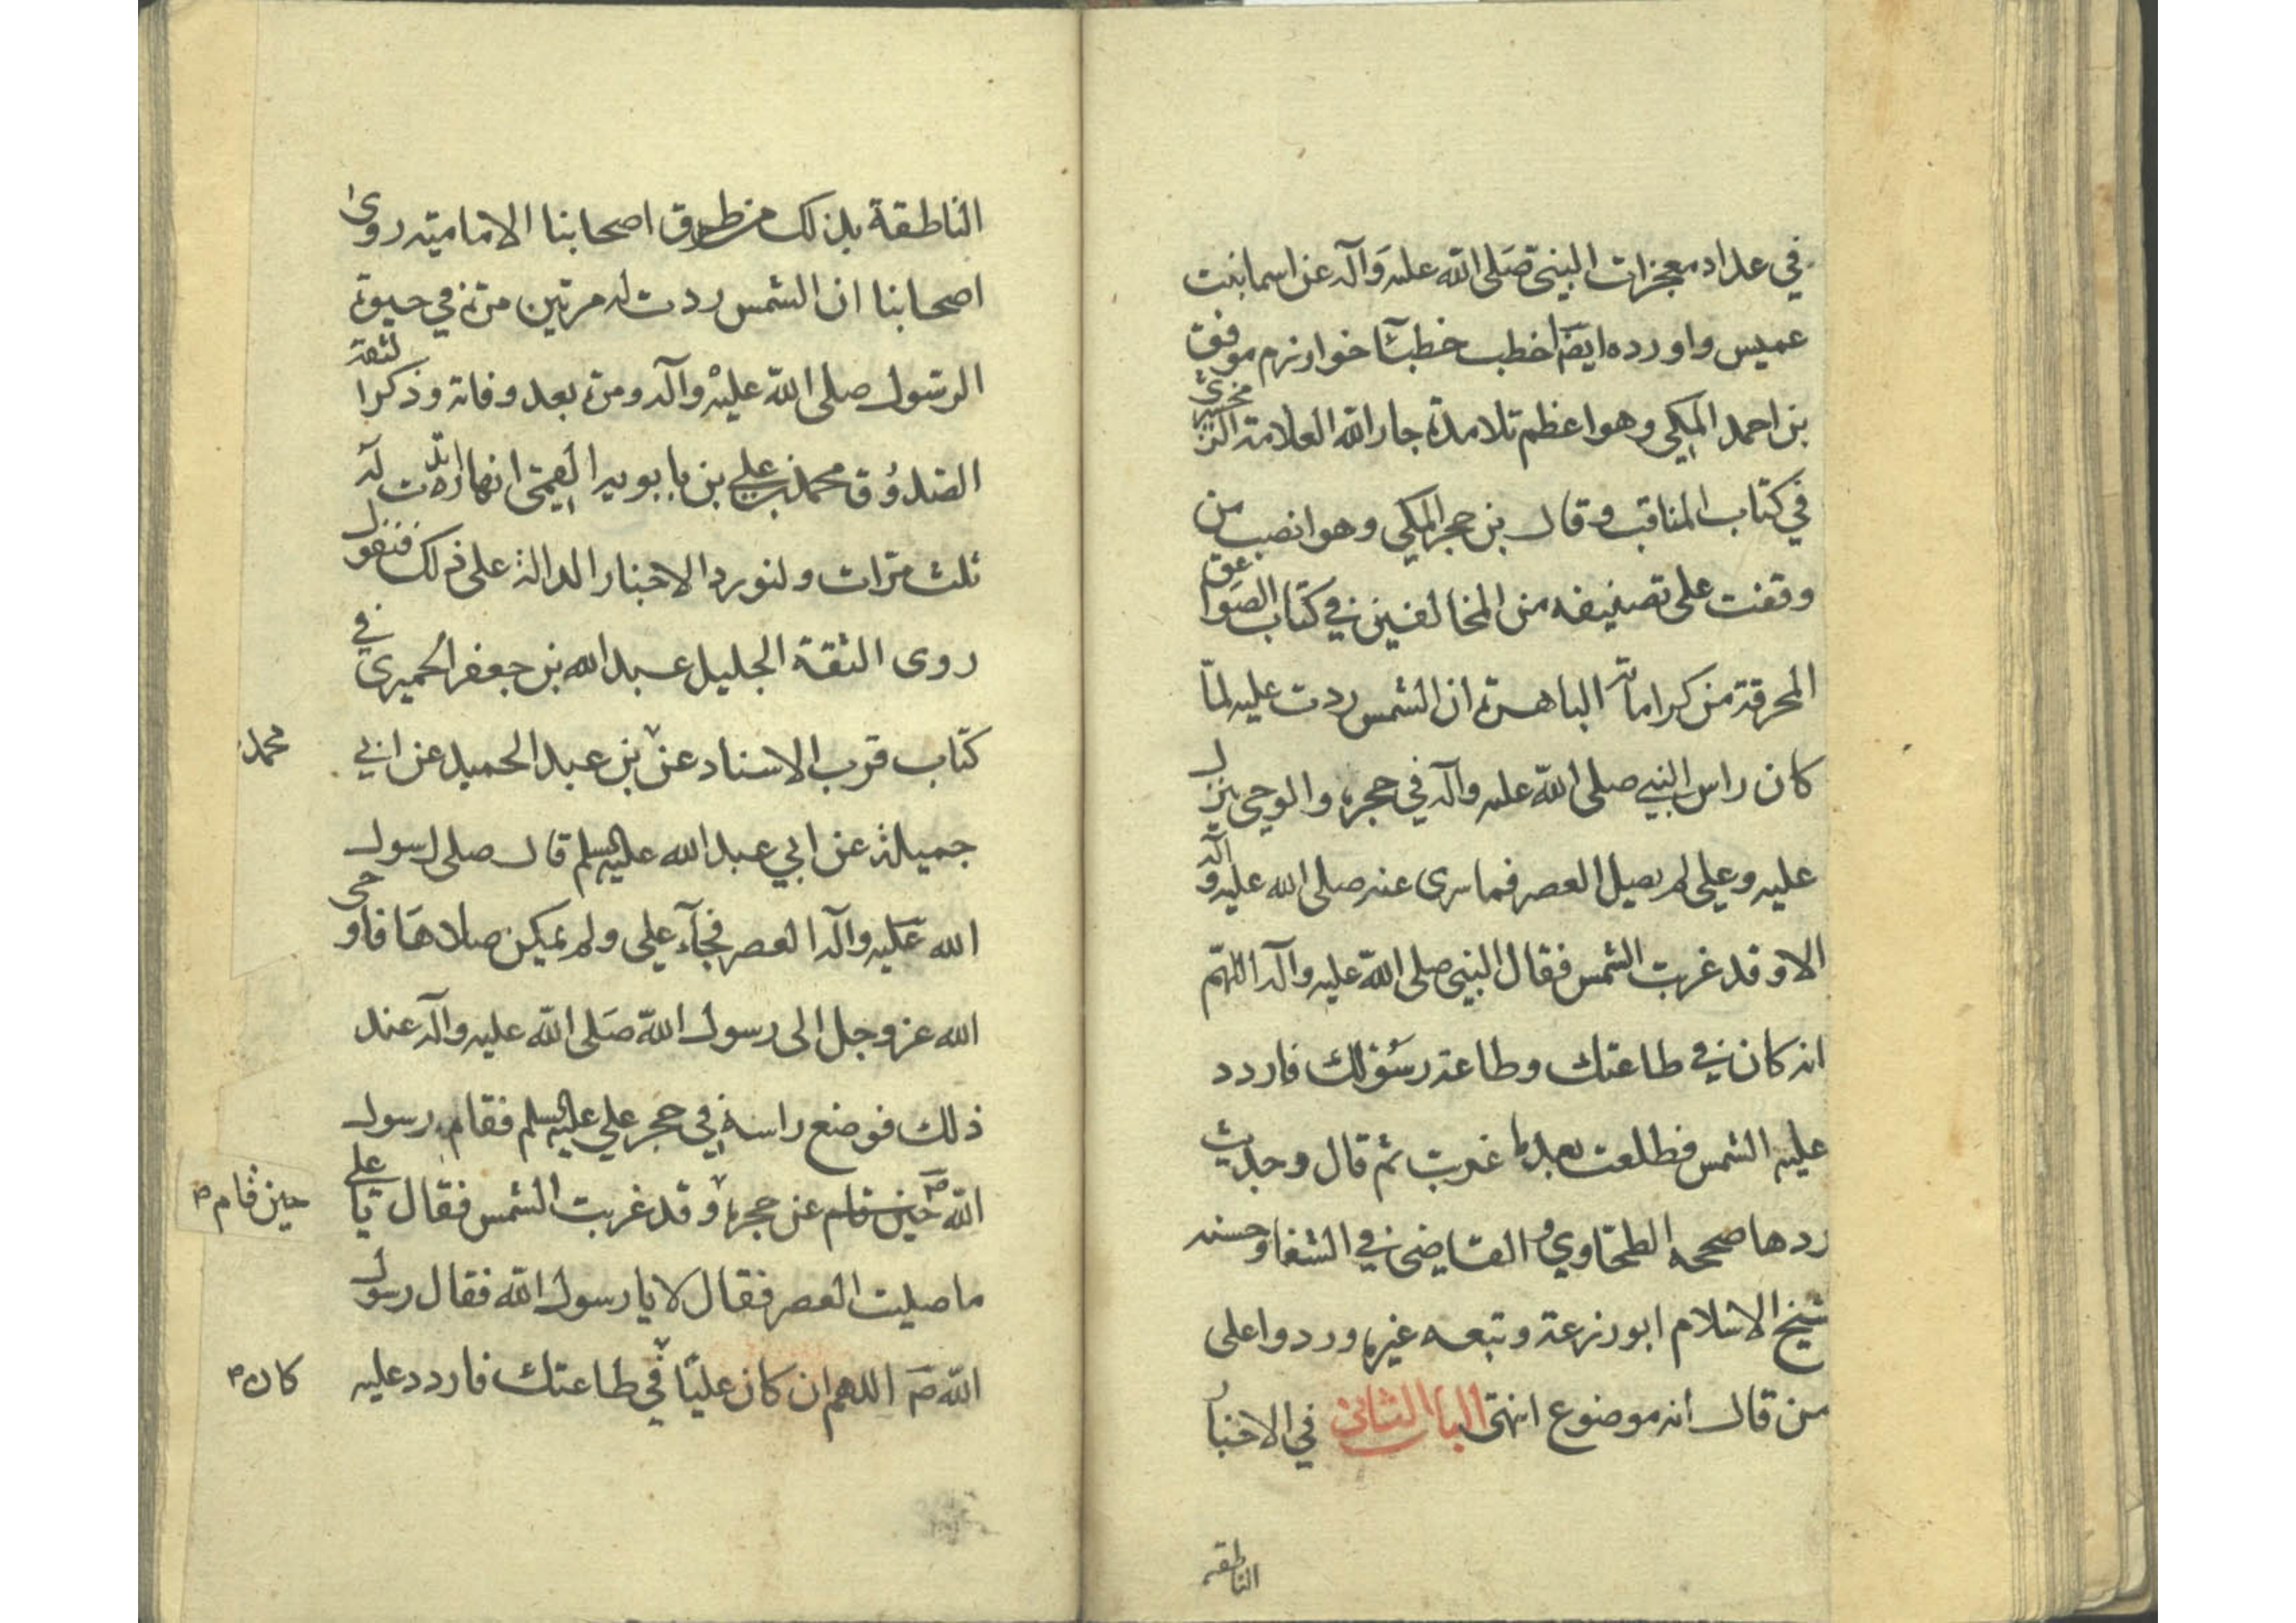 في عداد معجزات النبي صَلى الله عليه وَآله عن اسما بنت
عميس واورده ايضا اخطب خطبآ خوارزم موفق
بن احمد المكي وهو اعظم تلامذة جار الله العلامة الزمخشري
في كتاب المناقب وقال بن حجر المكي وهو انصب من
وقفت على تصنيفه من المخالفين في كتاب الصواعق
المحرقة من كراماته الباهرة ان الشمس ردت عليه لمّا
كان راس النبي صلى الله عليه وآله في حجره والوحي ينزل
عليه وعلي لم يصل العصر فما سرى عنه صلى الله عليه وآله
الا وقد غربت الشمس فقال النبي صلى الله عليه وآله اللهّم
انه كان في طاعتك وطاعة رسُولك فاردد
عليه الشمس فطلعت بعد ما غربت ثم قال وحديث
ردها صححه الطحاوي والقاضي في الشفا وحسنه
شيخ الاسلام ابو زرعة وتبعه غيره وردوا على
من قال انه موضوع انتهى الباب الثاني في الاخبار
الناطقه
الناطقة بذلك من طرق اصحابنا الاماميّه روى
اصحابنا ان الشمس ردت له مرتين مرّة في حيوة
الرسول صلى الله عليه وآله ومرة بعد وفاته وذكر الثقة
الصدُوق محمد بن علي بن بابويه القمي انها ردت له
ثلث مرّات ولنورد الاخبار الدالة على ذلك فنقول
روى الثقة الجليل عبد الله بن جعفر الحميرى في
كتاب قرب الاسناد عن بن عبد الحميد عن ابي
محمد
جميلة عن ابي عبد الله عليه السلم قال صلى رسول
الله عليه وآله العصر فجآء علي ولم يكن صلاهَا فاوحى
الله عز وجل الى رسول الله صَلى الله عليه وآله عند
ذلك فوضع راسه في حجر علي عليه السلم فقام رسول
الله صَ حين قام عن حجره وقد غربت الشمس فقال يا علي
حين قام
ما صليت العصر فقال لا يا رسول الله فقال رسول
الله صَ اللهم ان كان عليًا في طاعتك فاردد عليه
كان